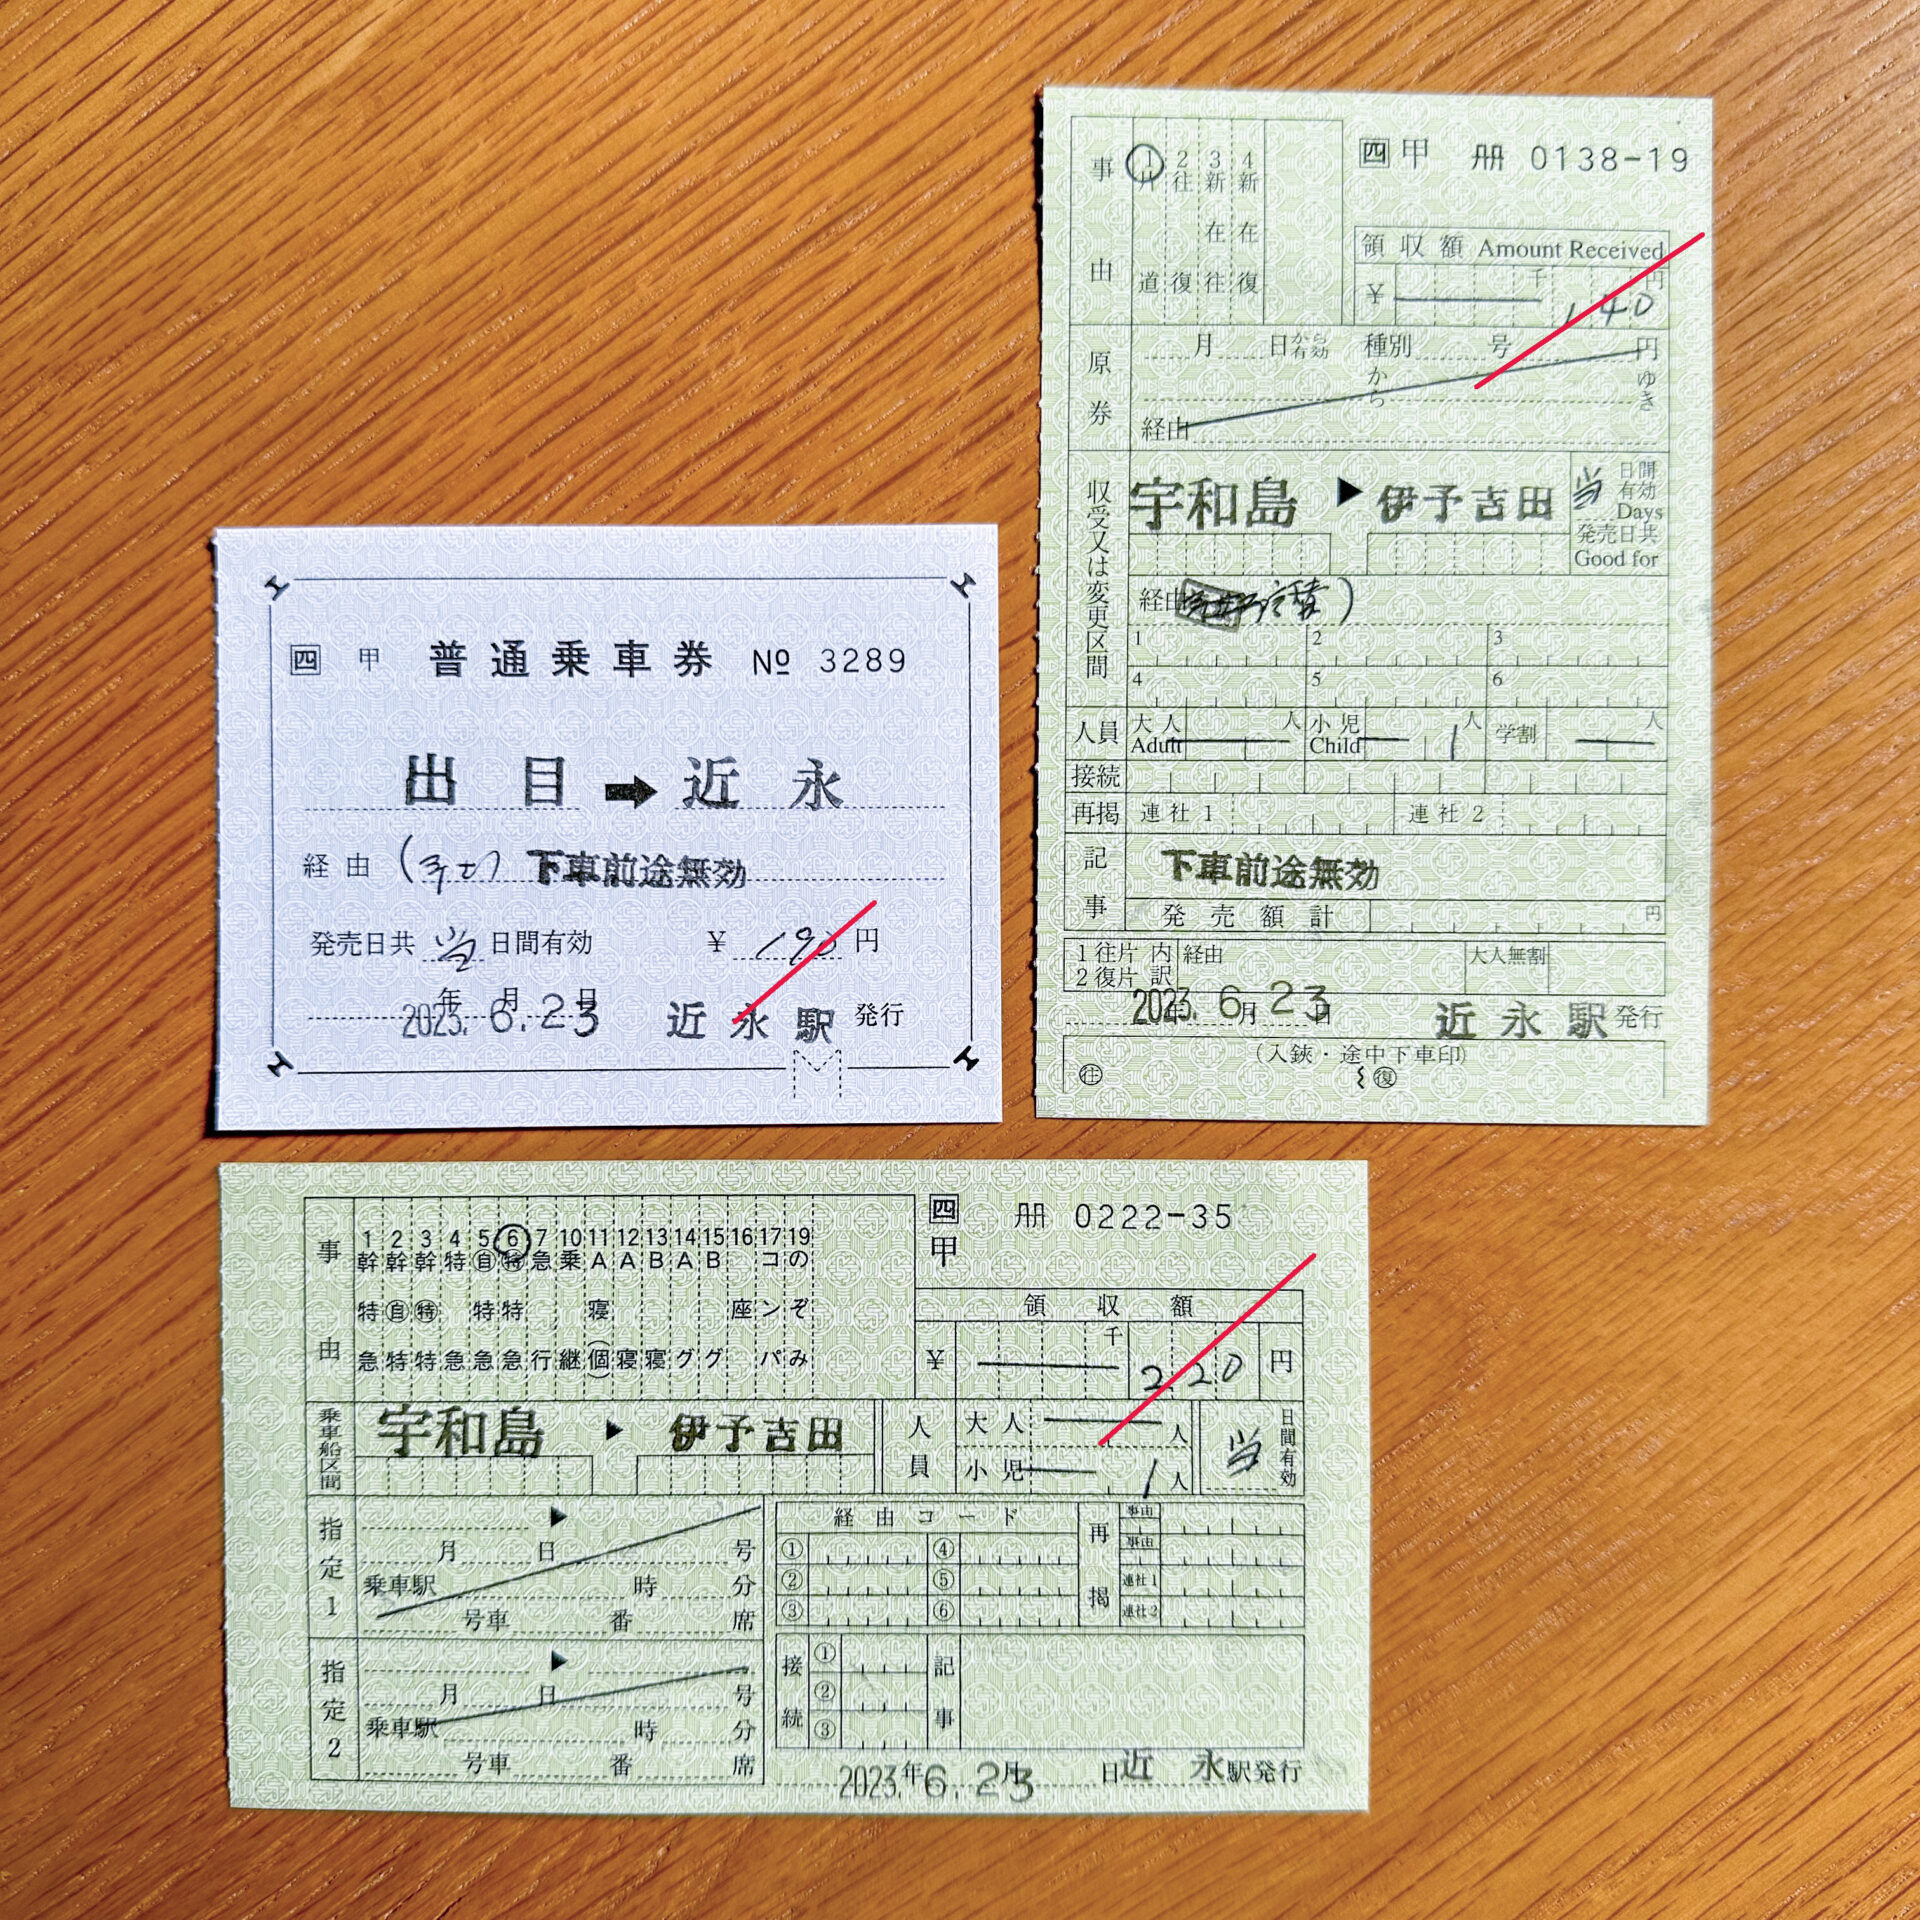 四 甲 普通乗車券 № 3289
出目 ➡ 近永
経由 (予土) 下車前途無効
発売日共 当 日間有効 ¥ 190 円
年 月 日
2023. 6.23 近永駅 発行
四 甲 冊 0138-19
事由
1 片道
2 往復
3 新在往
4 新在復
領収額 Amount Received
¥ 千 140 円
原券
月 日から有効 種別 号 円
から ゆき
経由
収受又は変更区間
宇和島 ▶ 伊予吉田
当 日間有効 Days
発売日共 Good for
経由
1 2 3
4 5 6
人員 大人 Adult 人 小児 Child 1 人 学割 人
接続
再掲 連社 1 連社 2
記事 下車前途無効
発売額計 円
1 往片 2 復片 内訳 経由 大人無割
2023. 6. 23 年 月 日 近永駅 発行
(入鋏・途中下車印)
往 復
四 甲 冊 0222-35
事由
1 幹特急
2 幹自特
3 幹特特
4 特急
5 自特急
6 特特急
7 急行
10 乗継
11 A寝(個)
12 A寝
13 B寝
14 Aグ
15 Bグ
16 座
17 コンパ
19 のぞみ
領収額
¥ 千 220 円
乗車船区間 宇和島 ▶ 伊予吉田
人員 大人 人
小児 1 人
当 日間有効
指定1 ▶
月 日 号
乗車駅 時 分
号車 番 席
経由コード
① ④
② ⑤
③ ⑥
再掲 事由
事由
連社 1
連社 2
指定2 ▶
月 日 号
乗車駅 時 分
号車 番 席
接続 ① ② ③
記事
2023. 年 6. 23 月 日 近永 駅発行